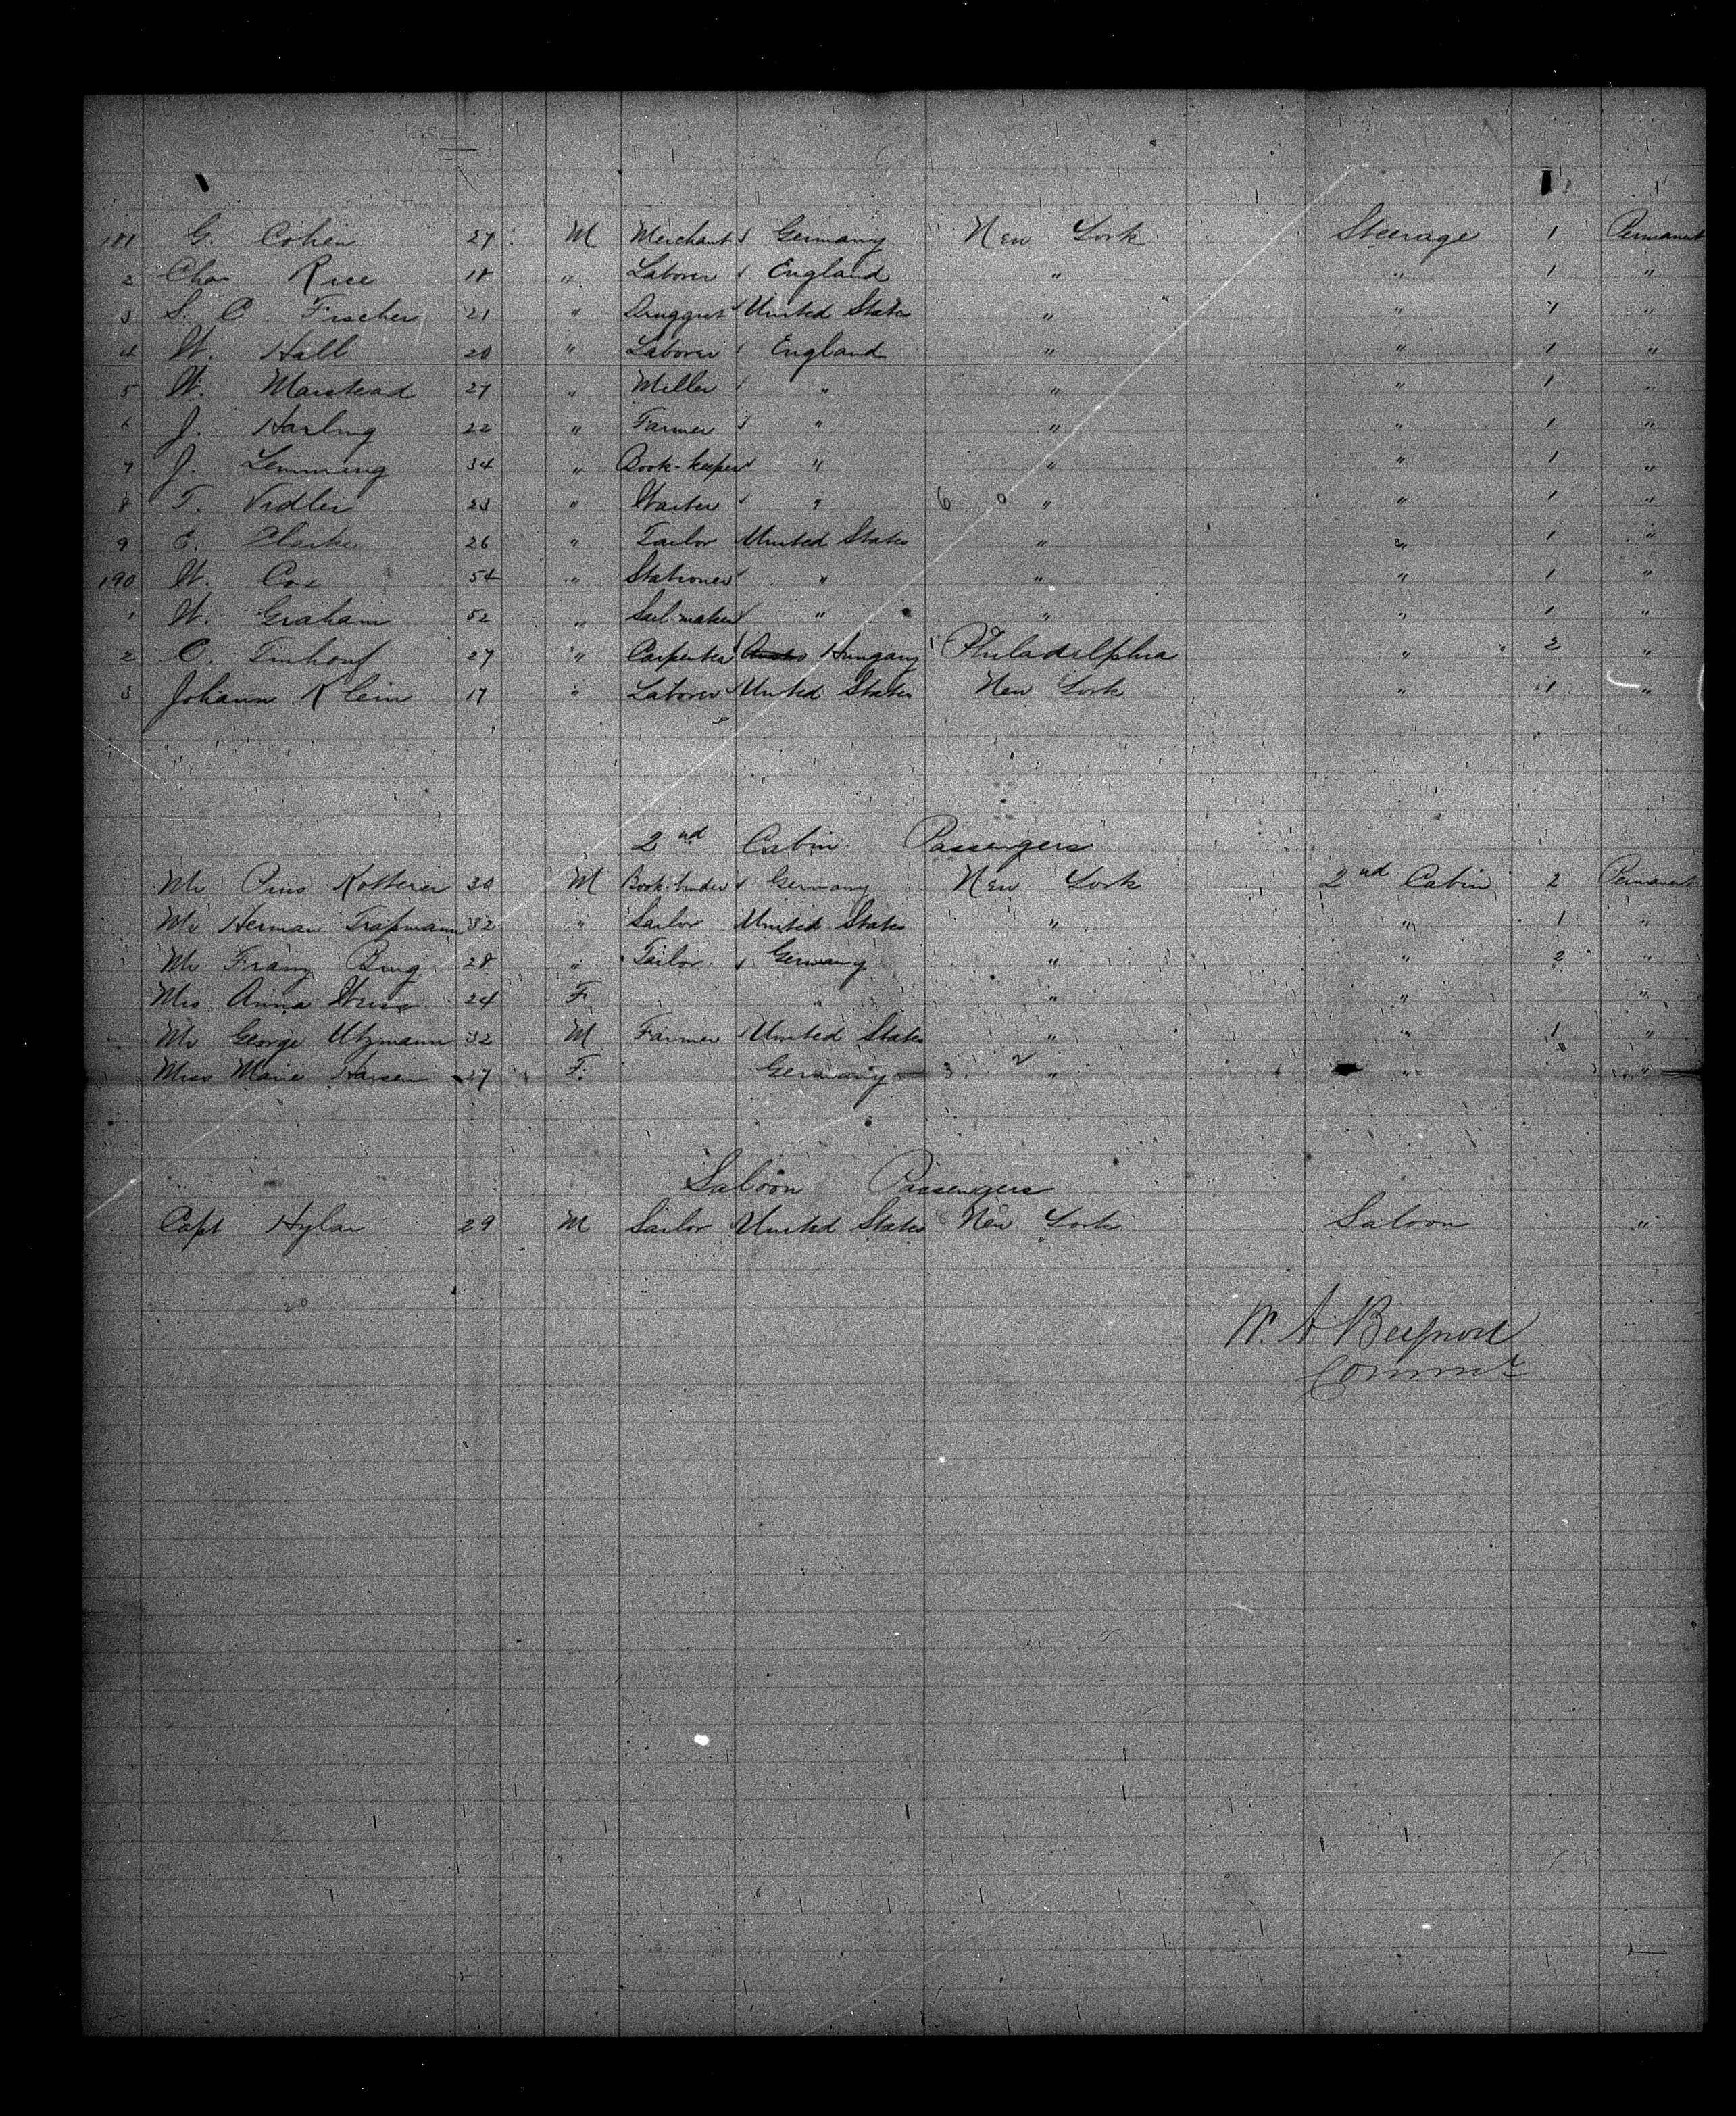 181 G. Cohen 27 M Merchant Germany New York Steerage 1 Permanent
2 Chas Rice 18 " Laborer England " " 1 "
3 S. C Fischer 21 " Druggist United States " " 1 "
4 W. Hall 20 " Laborer England " " 1 "
5 W. Marstead 27 " Miller " " " 1 "
6 J. Harling 22 " Farmer " " " 1 "
7 J. Lemming 34 " Book-keeper " " " 1 "
8 T. Vidler 23 " Waiter " 6 0 " " 1 "
9 C. Clarke 26 " Tailor United States " " 1 "
190 W. Cox 54 " Stationer " " " 1 "
1 W. Graham 52 " Sail maker " " " 1 "
2 C. 27 " Carpenter Hungary Philadelphia " 2 "
3 Johann Klein 17 " Laborer United States New York " 1 "
2nd Cabin Passengers
Mr Pius Kotterer 30 M Book-binder Germany New York 2nd Cabin 2 Permanent
Mr Herman Trapmann 32 " Sailor United States " " 1 "
Mr Franz 28 " Tailor Germany " " 2 "
Mrs Anna Weiss 24 F " " " "
Mr George Utzmann 32 M Farmer United States " " 1 "
Miss Marie Hansen 27 F. Germany 3 2 " " "
Saloon Passengers
Capt Hylar 29 M Sailor United States New York Saloon "
W. A
Commr